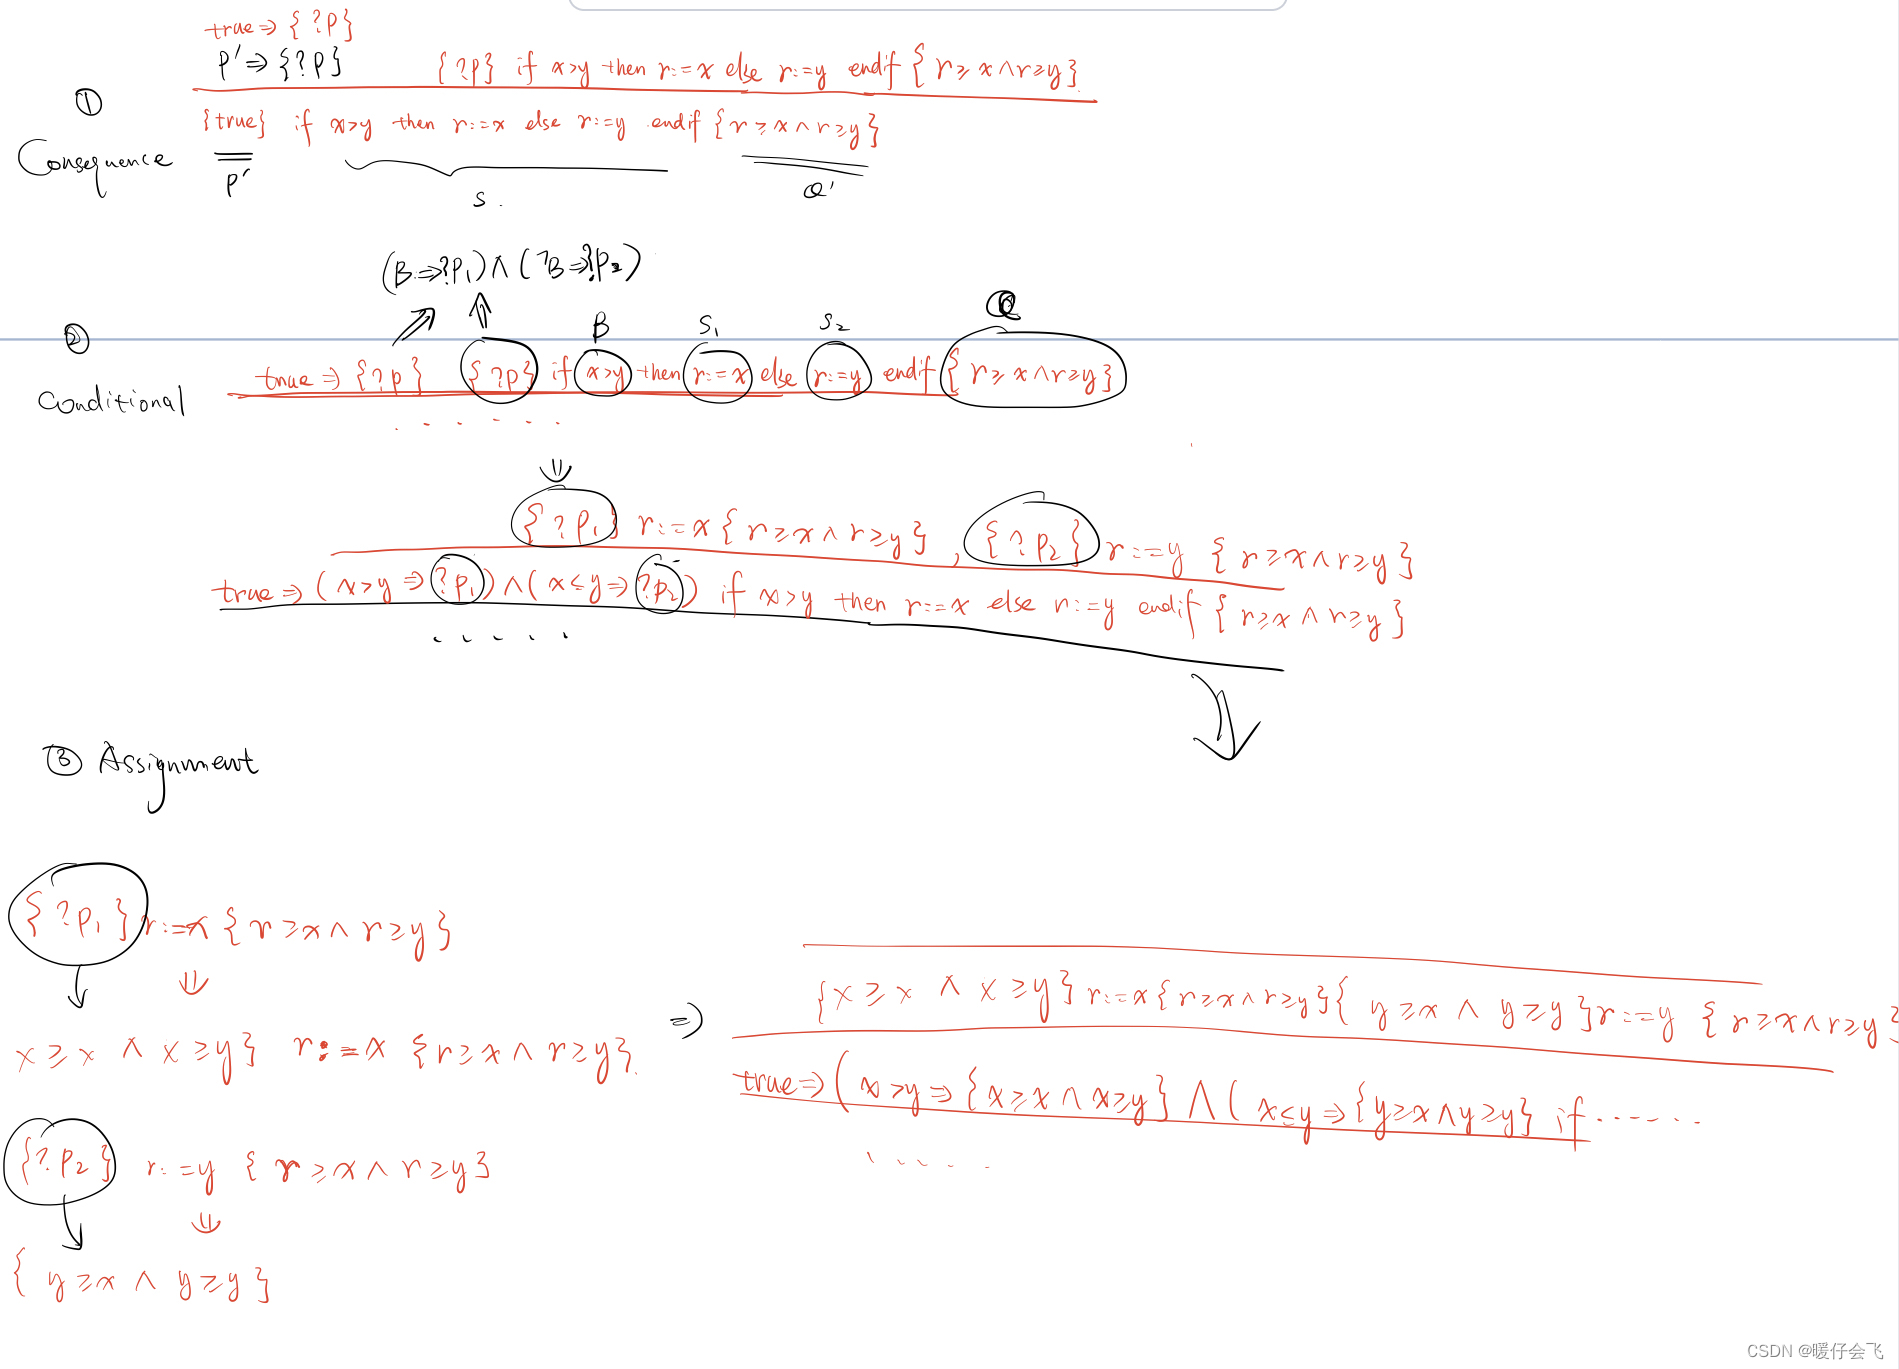 true ⇒ {?P}
P' ⇒ {?P} {?P} if x>y then r:=x else r:=y endif {r≥x∧r≥y}
①
{true} if x>y then r:=x else r:=y endif {r≥x∧r≥y}
Consequence
P' S. Q'
(B⇒?P₁)∧(¬B⇒?P₂)
② B S₁ S₂ Q
true ⇒ {?P} {?P} if x>y then r:=x else r:=y endif {r≥x∧r≥y}
Conditional
......
⇓
{?P₁} r:=x {r≥x∧r≥y}, {?P₂} r:=y {r≥x∧r≥y}
true ⇒ (x>y ⇒ ?P₁)∧(x≤y ⇒ ?P₂) if x>y then r:=x else r:=y endif {r≥x∧r≥y}
.....
③ Assignment
{?P₁} r:=x {r≥x∧r≥y}
⇓
x≥x ∧ x≥y} r:=x {r≥x∧r≥y}.
{?P₂} r:=y {r≥x∧r≥y}
⇓
{y≥x ∧ y≥y}
⇒) {x≥x ∧ x≥y} r:=x {r≥x∧r≥y} {y≥x ∧ y≥y} r:=y {r≥x∧r≥y}
true ⇒ (x>y ⇒ {x≥x ∧ x≥y} ∧ (x≤y ⇒ {y≥x∧y≥y} if ......
.....
CSDN @暖仔会飞